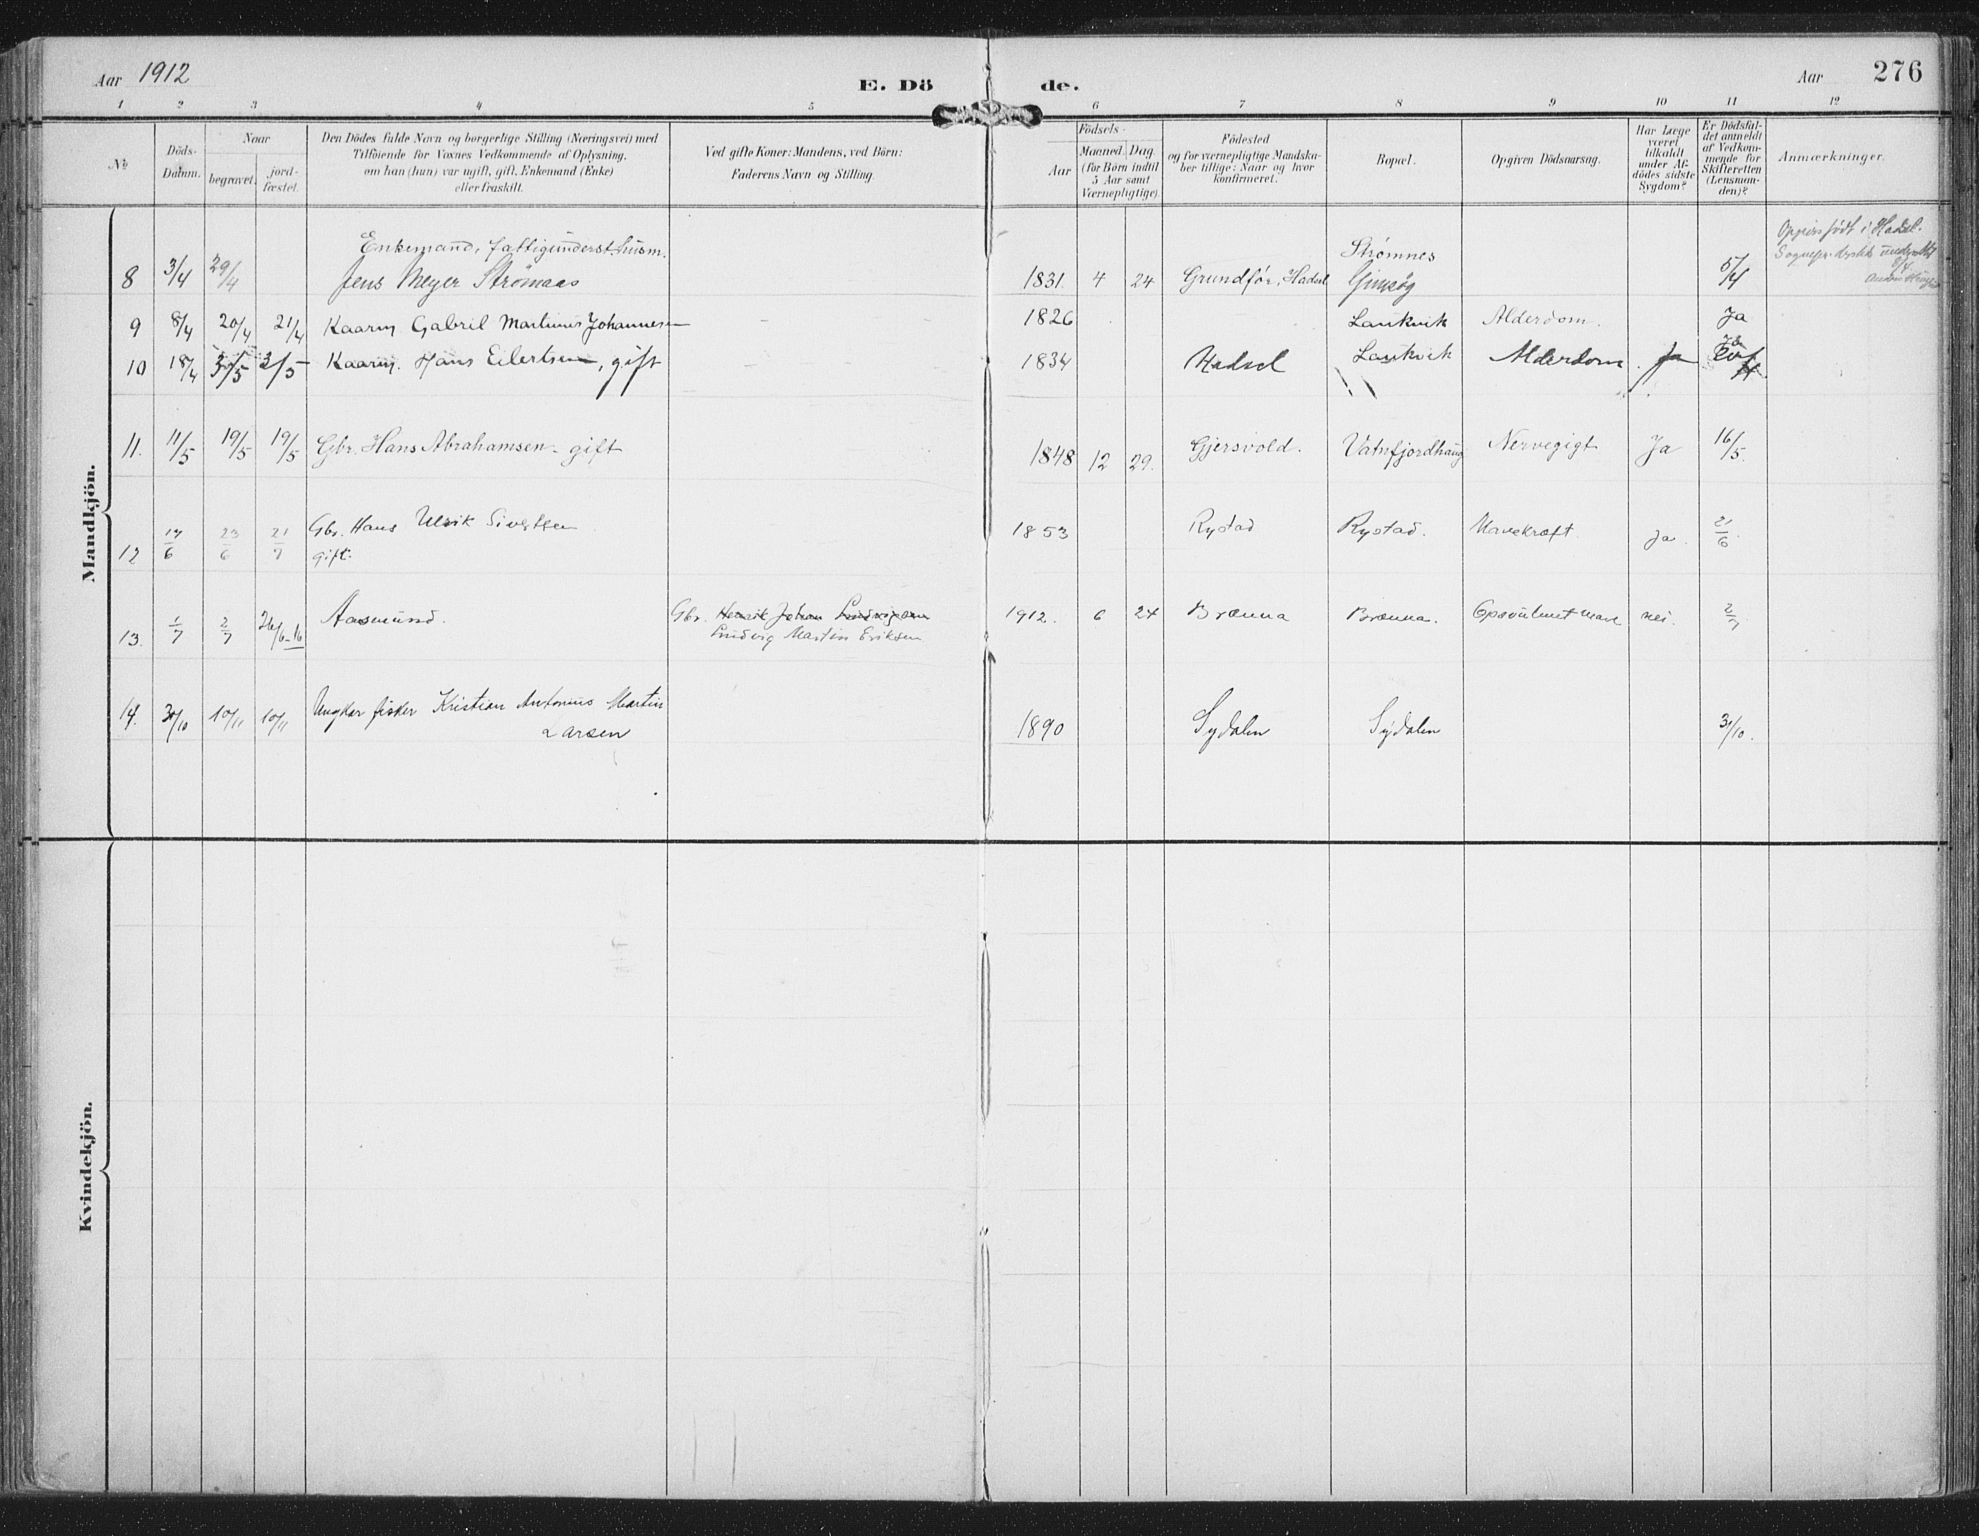 Aar 1912 E. Dö de. Aar 276
1 2 3 4 5 6 7 8 9 10 11 12
No
Döds-
Datum.
Naar
begravet.
jord-
fæstet.
Den Dödes fulde Navn og borgerlige Stilling (Næringsvei) med
Tilföiende for Voxnes Vedkommende af Oplysning,
om han (hun) var ugift, gift, Enkemand (Enke)
eller fraskilt.
Ved gifte Koner: Mandens, ved Börn:
Faderens Navn og Stilling.
Födsels-
Aar
Maaned. Dag.
(for Börn indtil
5 Aar samt
Værnepligtige)
Födested
og for værnepligtige Mandska-
ber tillige: Naar og hvor
konfirmeret.
Bopæl.
Opgiven Dödsaarsag.
Har Læge
været
tilkaldt
under Af-
dödes sidste
Sygdom?
Er Dödsfal-
det anmeldt
af Vedkom-
mende for
Skifteretten
(Lensman-
den)?
Anmærkninger.
Mandkjön.
Enkemand, fattigunderst. husm.
8 3/4 29/4 Jens Meyer Strömaas 1831. 4 24 Grundför, Hadsel Strømnes Gimsøy 5/4 født i Hadsel.
9 8/4 20/4 21/4 Kaarm Gabril Martinus Johannesen - 1826 Laukvik Alderdom. Ja
10 18/4 3/5 Kaarm. Hans Eilertsen, gift - 1834 Hadsel Laukvik Alderdom. Ja
11. 11/5 19/5 19/5 Gbr. Hans Abrahamsen - gift 1848 12 29. Gjersvold. Vatnfjordhaug Nervegigt Ja 16/5.
12 17/6 23/6 21/7 Gbr. Hans Ulrik Sivertsen 1853 Rystad Rystad. Mavekræft. ja. 21/6.
gift.
13. 1/7 2/7 26/6-16 Aasmund. Gbr. Henrik Johan Ludvigsen 1912. 6 24 Brænna Brænna. nei. 2/7
Ludvig Martin Eriksen
14. 30/10 10/11 10/11 Ungkar fisker Kristian Antonius Martin
Larsen 1890 Sydalen Sydalen 31/10.
Kvindekjön.